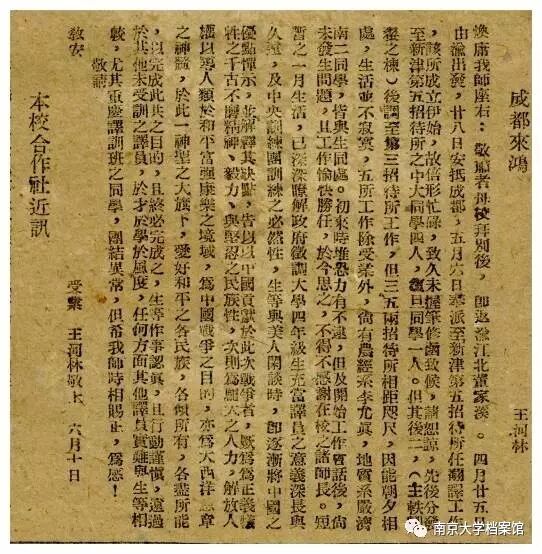 成都來鴻
王河林
煥庸我師座右：敬肅者拜校拜別後，即返渝江北董家溪。四月廿五
由渝出發，廿八日安抵成都，五月六日奉派至新津第五招待所任翻譯工作
，該所成立伊始，故倍形忙碌，致久未握筆修函致候，諸恕諒，先後分發
至新津第五招待所之中大同學四人，復旦同學一人。但其後二，（主軼
羣之棟）後調至第三招待所工作，但三五兩招待所相距咫尺，因能朝夕相
處，生活並不寂寞，五所工作除受業外，尚有農經系李尤眞，地質系嚴濟
南二同學，皆與生同處。初來時雖感力有不逮，但及開始工作實話後，尚
未發生問題，且工作愉快勝任，於今思之，不得不感謝在校之諸師長。短
暫之一月生活，已深深瞭解政府徵調大學四年級生充當譯員之意義深長與
久遠，及中央訓練團訓練之必然性，生等與美人閑談時，即逐漸將中國之
優點憚示，並解釋其缺點，皆以以中國貢獻於此次戰爭者，厥爲爲正義犧
牲之千古不磨精神，毅力，與堅忍之民族性，次則爲龐大之人力，解放人
權以導人類於和平富強康樂之境域，爲中國戰爭之目的，亦爲大西洋憲章
之神髓，於此一神聖之大旗下，愛好和平之各民族，各傾所有，各盡所能
，以完成此共之目的，且終必完成之，生等作事認眞，且行動謹慎，遠過
於其他未受訓之譯員，於才於學於風度，任何方面其他譯員實難與生等相
較，尤其重慶譯訓班之同學，團結異常，但希我師時相賜止，爲感！
敬請
教安
受業 王河林敬上 六月十日
本校合作社近訊
南京大学档案馆